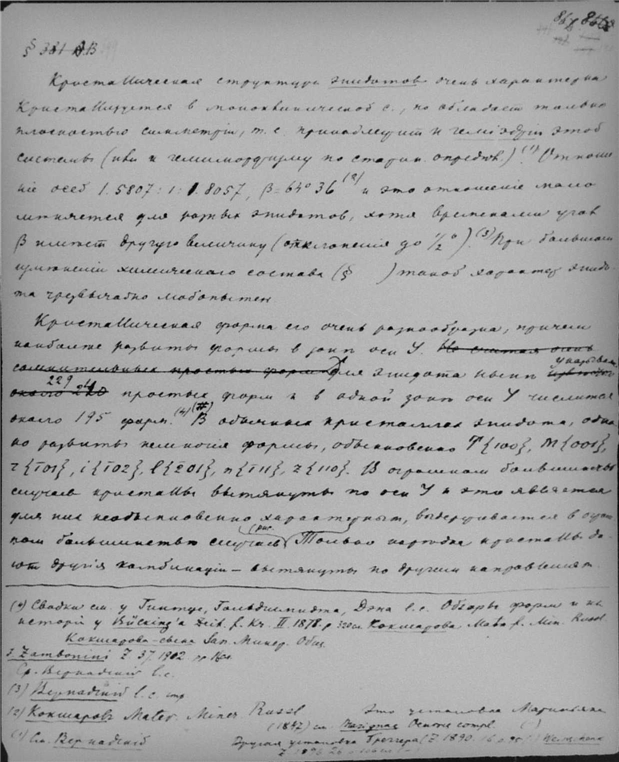 § 381 AB
Кристаллическая структура эпидотов очень характерна
Кристаллизуется в моноклинической с., но обладает только
плоскостью симметрiи, т. е. принадлежит к гемiэдрiи этой
системы (или к гемиморфизму по старин. определ.) (1). Отноше
нiе осей 1.5807 : 1 : 1.8057, β = 64° 36 (2) и это отношение мало
меняется для разных эпидотов, хотя временами угол
β имеет другую величину (отклоненiя до ½°). (3) При большом
измененiи химического состава (§ ) такой характер эпидо-
та чрезвычайно любопытен
Кристаллическая форма его очень разнообразна, причем
наиболее развиты формы в зоне оси У. Не считая очень
сомнительных простых форм для эпидота ныне указывают
229 простых форм и в одной зоне оси У числится
около 195 форм. (4) В обычных кристаллах эпидота, одна-
ко развиты немногiя формы, обыкновенно T{100}, M{001},
r{101}, i{102}, l{201}, n{111}, z{110}. В огромном большинстве
случаев кристаллы вытянуты по оси У и это является
для них необыкновенно характерным, выдерживается в
ном большинстве случаев (рис. ) Только изредка кристаллы да-
ют другiя комбинацiи – вытянуты по другим направленiям.
(4) Сводки см. у Гинтце, Гольдшмидта, Дэна l.c. Обзоры форм и их
исторiя у Bücking'a Zeit. f. Kr. II 1878. p Кокшарова Mater. f. Min. Russl
Кокшарова Зап. Минер. Общ.
Zambonini Z. 37. 1902
Ср. Вернадскiй l.c.
(3) Вернадскiй l.c. стр
(2) Кокшаров Mater. Miner. Russl Это установка Мариньяка
(1847) см.
(1) См. Вернадскiй Другая установка (Z 1890.